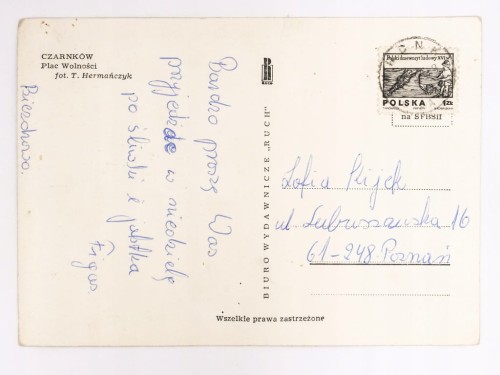 CZARNKÓW
Plac Wolności
fot. T. Hermańczyk
Bardzo proszę Was.
przyjedźcie w niedzielę
po śliwki i jabłka
BIURO WYDAWNICZE „RUCH”
POLSKA 1zł
na SFBSiI
Zofia Kijek
ul. Lubuszanska 16
61-248 Poznań
Wszelkie prawa zastrzeżone